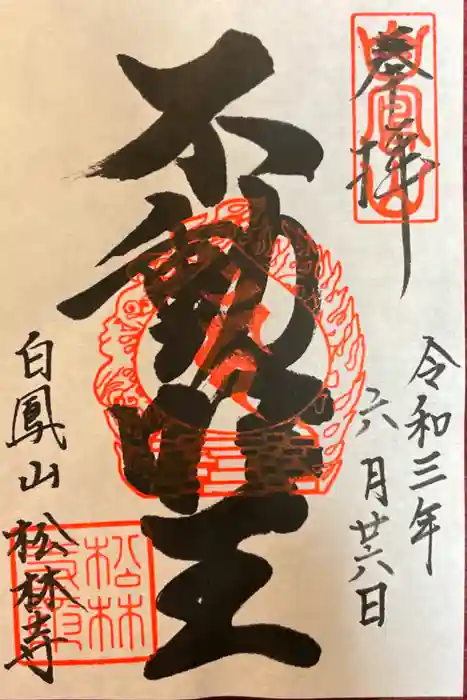 奉拝
令和三年
六月廿六日
不動明王
白鳳山
松林寺
松林